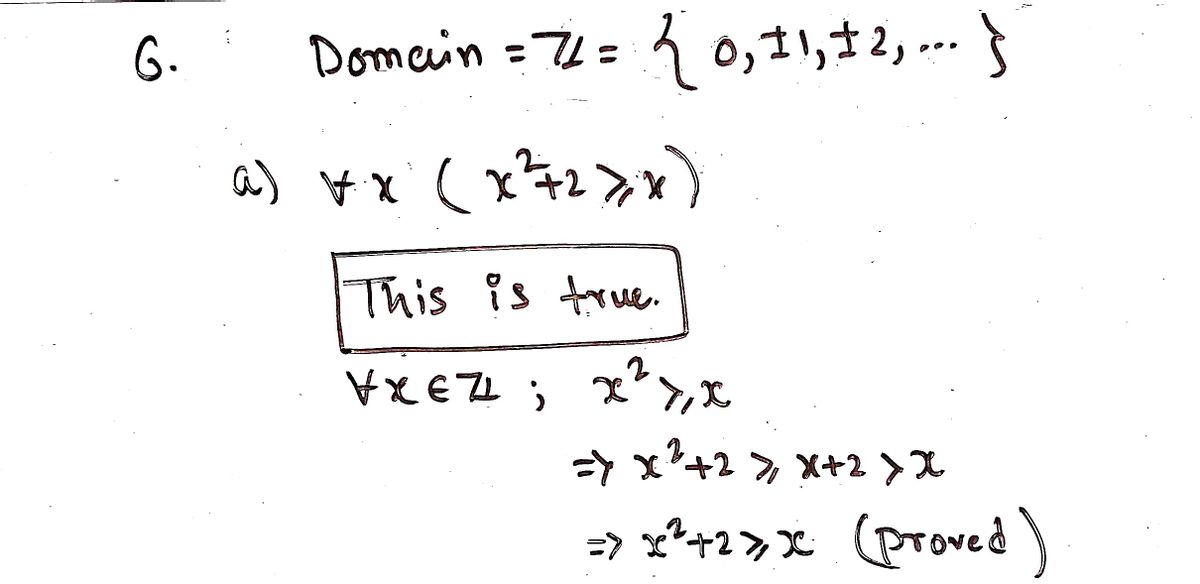 6. Domain = ℤ = { 0, ±1, ±2, ... }
a) ∀x ( x²+2 ≥ x )
This is true.
∀x ∈ ℤ ; x² ≥ x
=> x²+2 ≥ x+2 > x
=> x²+2 ≥ x (proved)